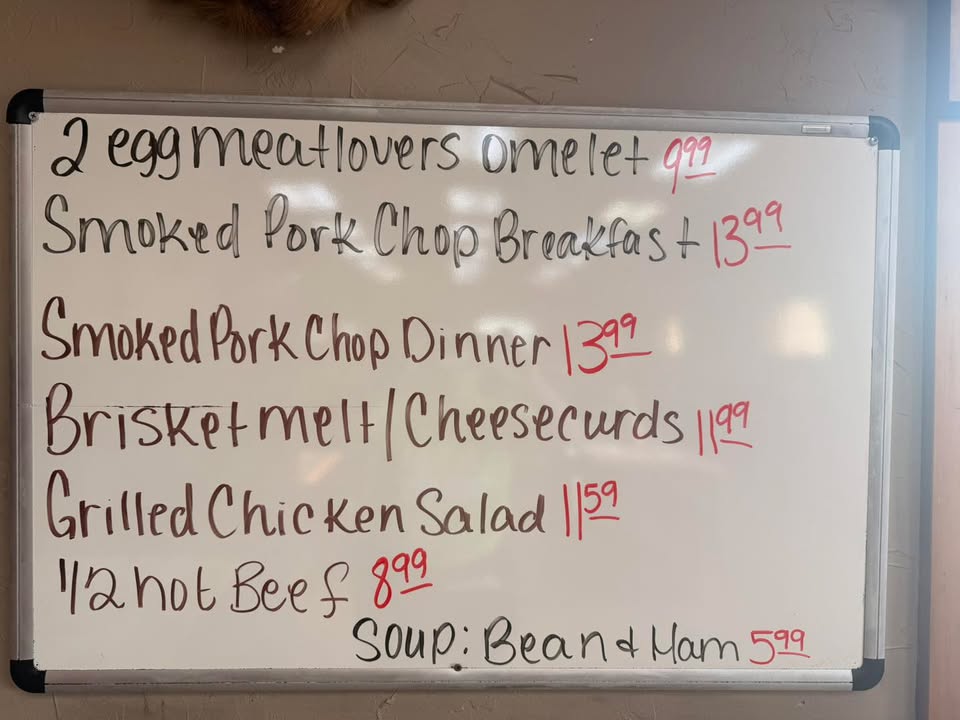 2 egg meatlovers omelet 9.99
Smoked Pork Chop Breakfast 13.99
Smoked Pork Chop Dinner 13.99
Brisket melt/Cheesecurds 11.99
Grilled Chicken Salad 11.59
1/2 hot Beef 8.99
Soup: Bean & Ham 5.99